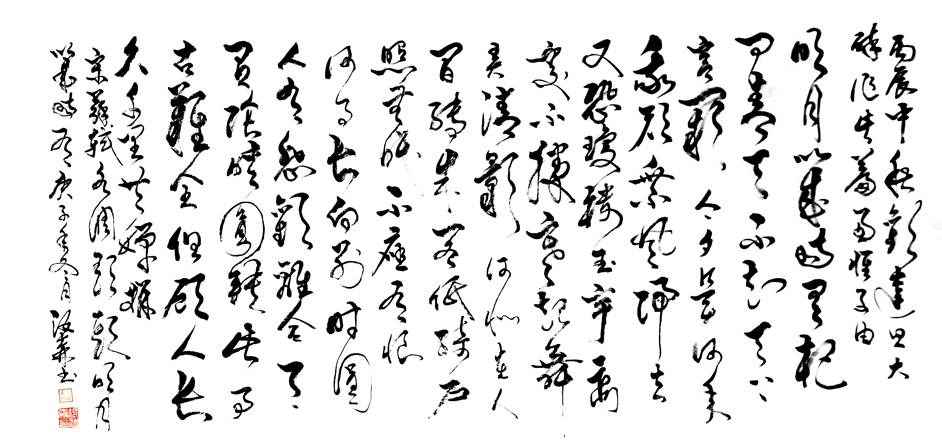 丙辰中秋歡達旦大
醉作此篇兼懷子由
明月幾時有把
青天不知天上
宮闕今夕是何年
我欲乘風歸去
又恐瓊樓玉宇高
處不勝寒起舞
弄清影何似在人
間轉朱閣低綺戶
照無眠不應有恨
何事長向別時圓
人有悲歡離合月
有陰晴圓缺此事
古難全但願人長
久千里共嬋娟
宋蘇軾水調歌頭明月
幾時有庚子年冬月書